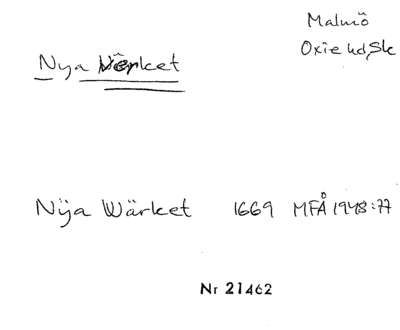 Malmö
Oxie hd, Sk
Nya Verket
Nÿa Wärket 1669 MFÅ 1948:77
Nr 21462